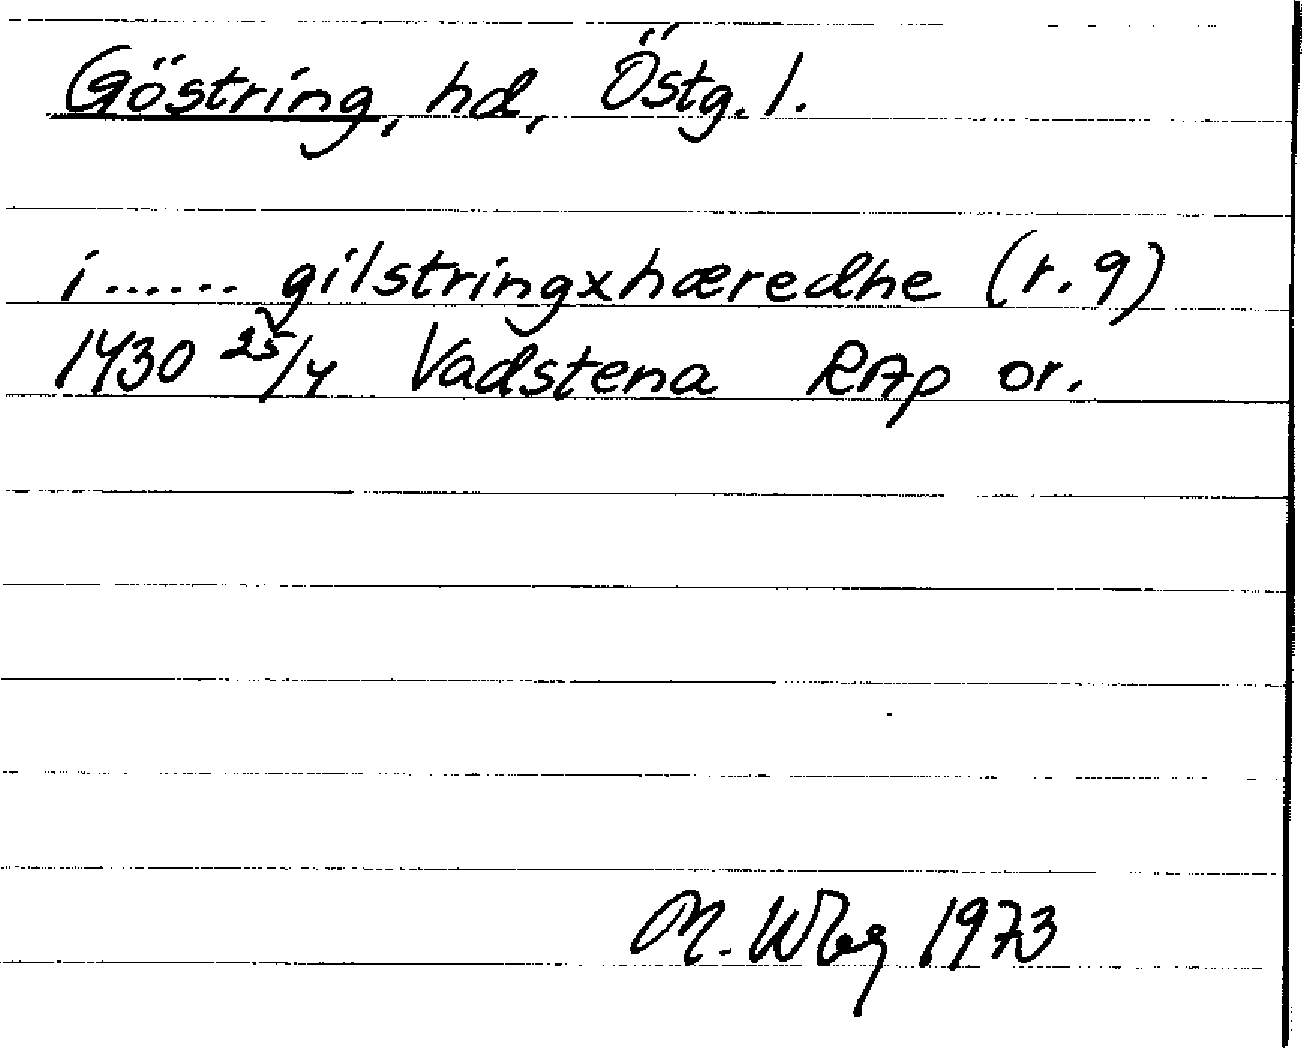 Göstring, hd, Östg. l.
i...... gilstringxhæredhe (r. 9)
1430 25/4 Vadstena RAp or.
M. Wbg 1973